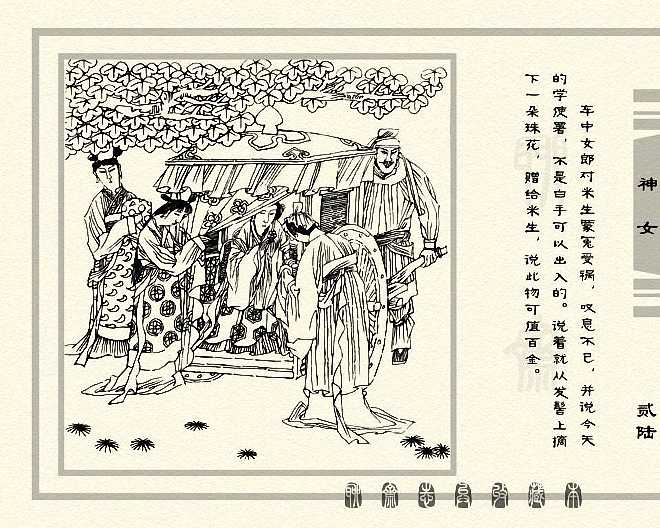 车中女郎对米生蒙冤受祸，叹息不已，并说今天
的学使署，不是白手可以出入的。说着就从发髻上摘
下一朵珠花，赠给米生，说此物可值百金。
神女
贰陆